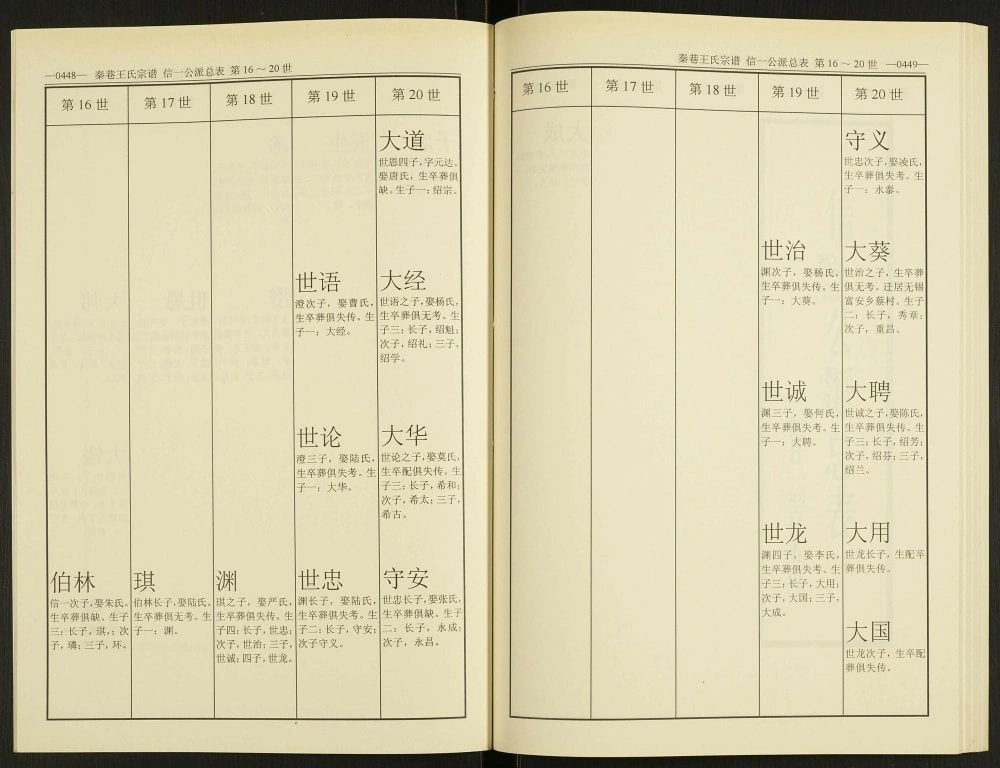 —0448— 秦巷王氏宗谱 信一公派总表 第16～20世
第16世
第17世
第18世
第19世
第20世
大道
世恩四子,字元达。
娶唐氏，生卒葬俱
缺。生子一：绍宗。
世语
澄次子，娶曹氏,
生卒葬俱失传。生
子一：大经。
大经
世语之子,娶杨氏,
生卒葬俱无考。生
子三:长子,绍魁;
次子,绍礼;三子,
绍学。
世论
澄三子，娶陆氏,
生卒葬俱失考。生
子一：大华。
大华
世论之子,娶莫氏,
生卒配俱失传。生
子三:长子,希和;
次子,希太;三子,
希古。
伯林
信一次子,娶朱氏,
生卒葬俱缺。生子
三:长子,琪,;次
子,璘;三子,环。
琪
伯林长子,娶陆氏。
生卒葬俱无考。生
子一：渊。
渊
琪之子，娶严氏,
生卒葬俱失传。生
子四:长子,世忠;
次子,世治;三子,
世诚;四子,世龙。
世忠
渊长子，娶陆氏,
生卒葬俱失考。生
子二:长子,守安;
次子守义。
守安
世忠长子,娶张氏,
生卒葬俱缺。生子
二：长子，永成;
次子，永昌。
秦巷王氏宗谱 信一公派总表 第16～20世 —0449—
第16世
第17世
第18世
第19世
第20世
守义
世忠次子,娶凌氏,
生卒葬俱失考。生
子一：永泰。
世治
渊次子，娶杨氏,
生卒葬俱失传。生
子一：大葵。
大葵
世治之子，生卒葬
俱无考。迁居无锡
富安乡蔡村。生子
二：长子，秀章;
次子，重昌。
世诚
渊三子，娶何氏,
生卒葬俱失考。生
子一：大聘。
大聘
世诚之子,娶陈氏,
生卒葬俱失传。生
子三:长子,绍芳;
次子,绍芬;三子,
绍兰。
世龙
渊四子，娶李氏,
生卒葬俱失考。生
子三:长子,大用;
次子,大国;三子,
大成。
大用
世龙长子,生配卒
葬俱失传。
大国
世龙次子，生卒配
葬俱失传。